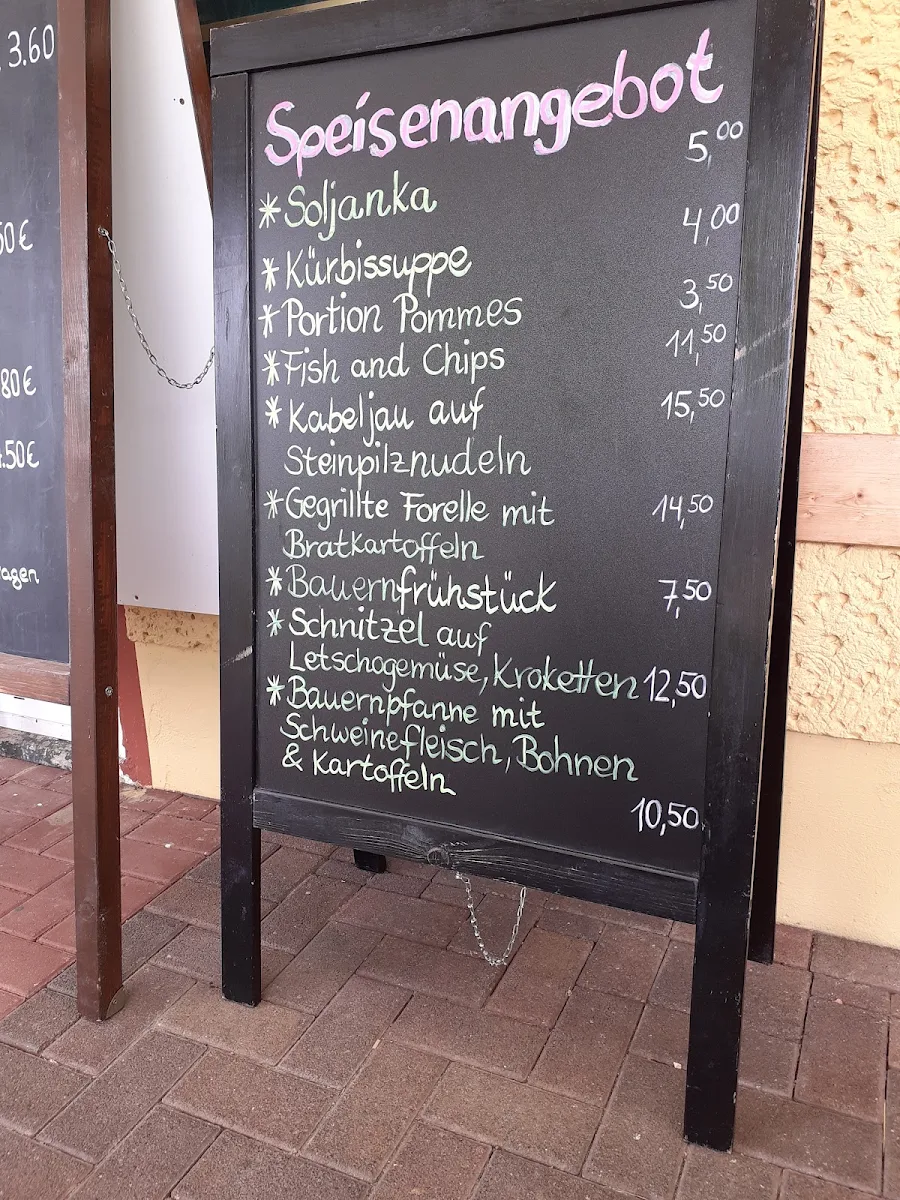 3.60
50€
80€
.50€
agen
Speisenangebot
*Soljanka 5,00
*Kürbissuppe 4,00
*Portion Pommes 3,50
*Fish and Chips 11,50
*Kabeljau auf 15,50
Steinpilznudeln
*Gegrillte Forelle mit 14,50
Bratkartoffeln
*Bauernfrühstück 7,50
*Schnitzel auf
Letschogemüse, Kroketten 12,50
*Bauernpfanne mit
Schweinefleisch, Bohnen
& Kartoffeln
10,50